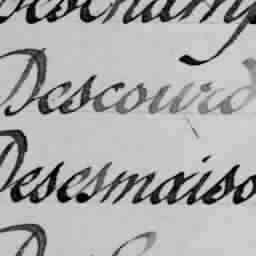 Deschamp
Descourd
Desesmaiso